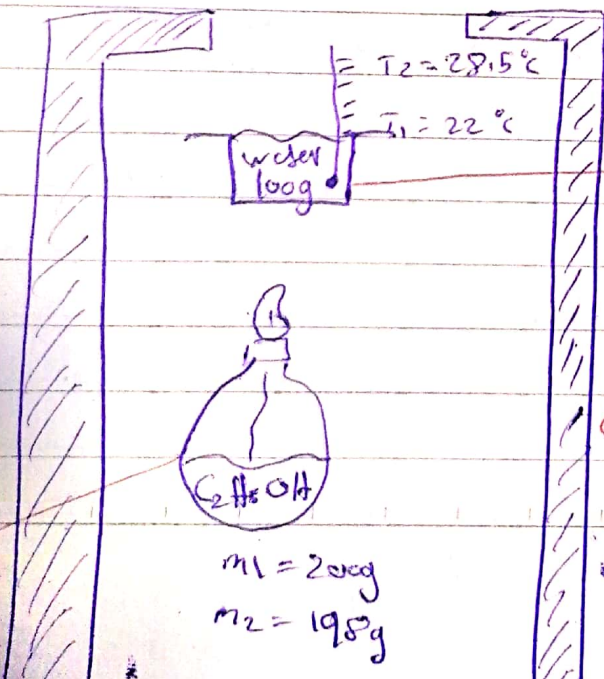 T2 = 28.5°C
T1 = 22°C
water
100g
C2H5OH
m1 = 200g
m2 = 198g